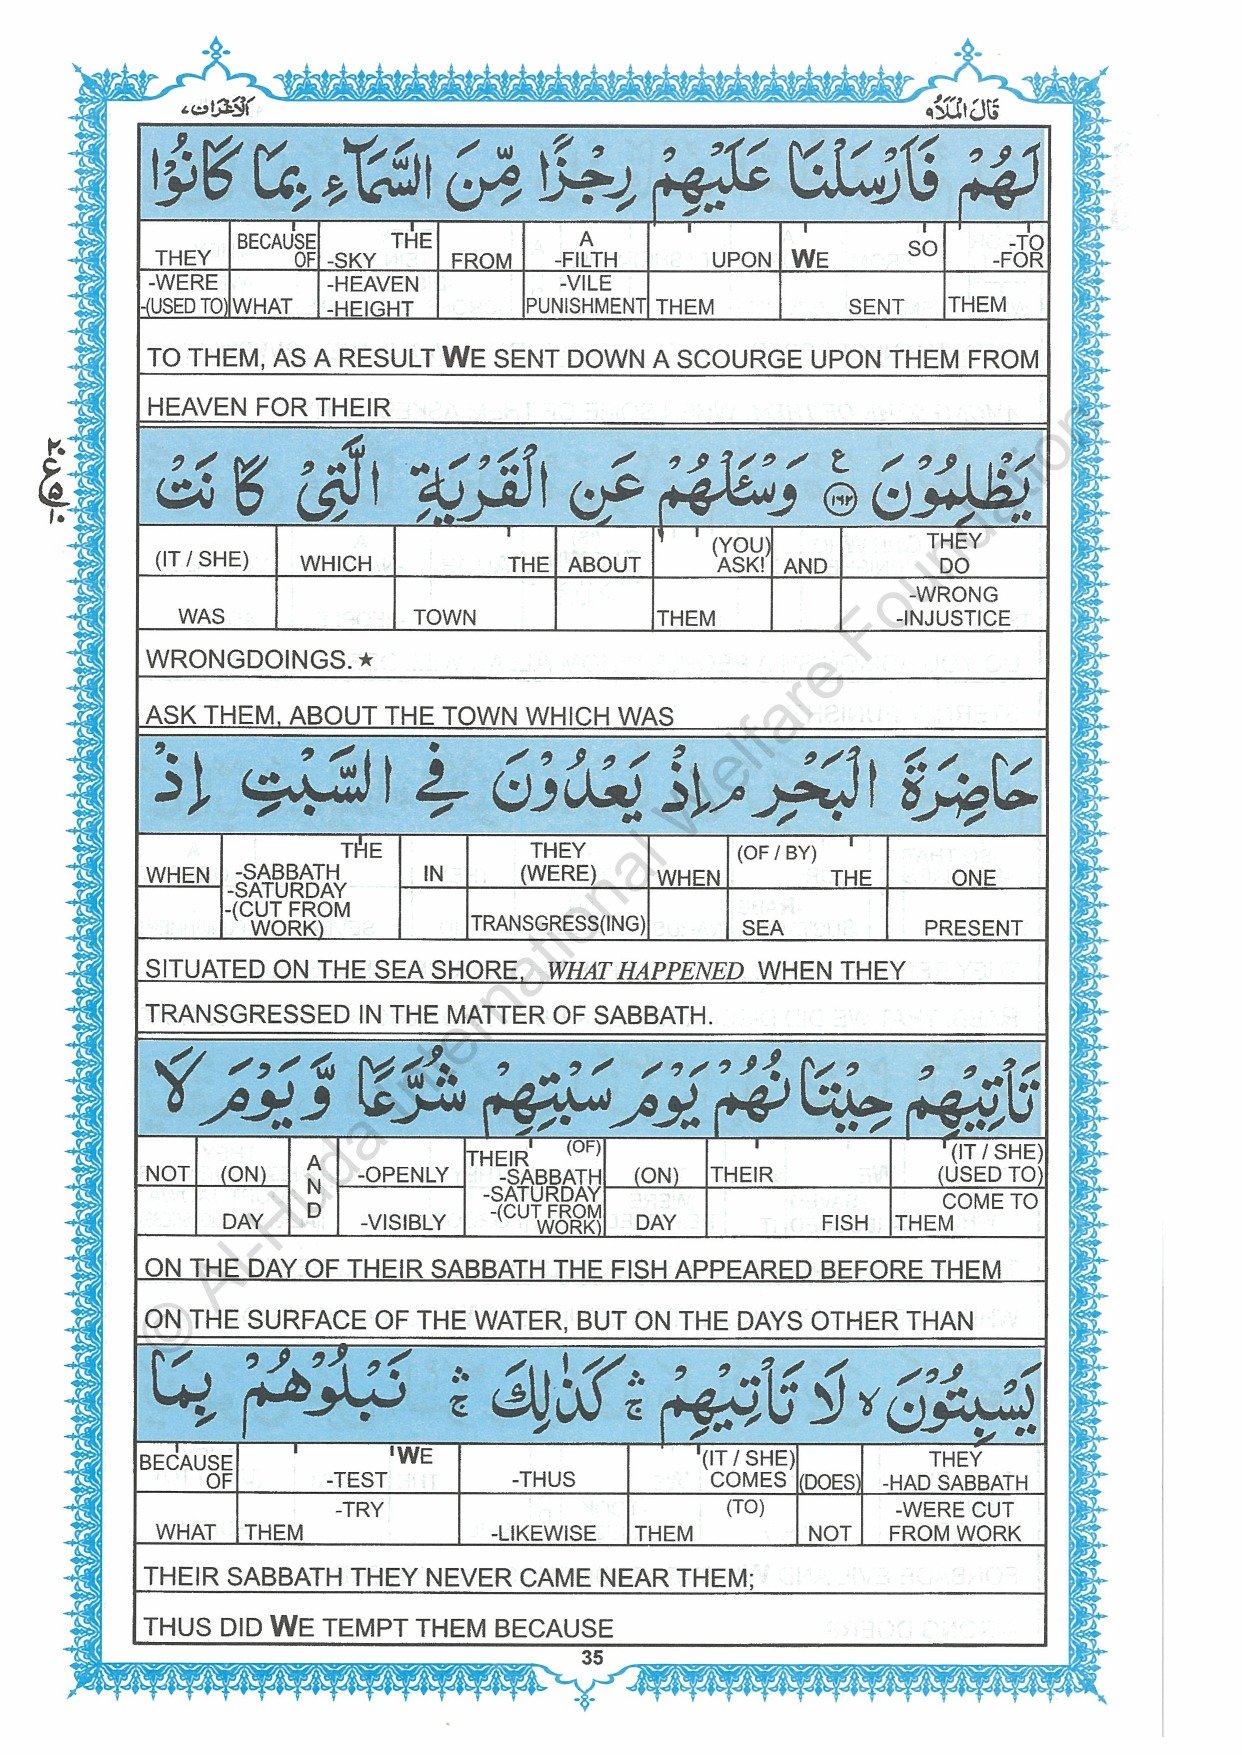 قَالَ الْمَلَاُ ٩
الْاَعْرَاف ٧
لَهُمْ فَاَرْسَلْنَا عَلَيْهِمْ رِجْزًا مِّنَ السَّمَآءِ بِمَا كَانُوْا
THEY BECAUSE OF THE -SKY FROM A -FILTH UPON WE SO -TO -FOR
-WERE -(USED TO) WHAT -HEAVEN -HEIGHT -VILE PUNISHMENT THEM SENT THEM
TO THEM, AS A RESULT WE SENT DOWN A SCOURGE UPON THEM FROM
HEAVEN FOR THEIR
يَظْلِمُوْنَ ١٦٢ ع وَسْـَٔلْهُمْ عَنِ الْقَرْيَةِ الَّتِيْ كَانَتْ
(IT / SHE) WHICH THE ABOUT (YOU) ASK! AND THEY DO
WAS TOWN THEM -WRONG -INJUSTICE
WRONGDOINGS. ★
ASK THEM, ABOUT THE TOWN WHICH WAS
حَاضِرَةَ الْبَحْرِ م اِذْ يَعْدُوْنَ فِي السَّبْتِ اِذْ
WHEN THE -SABBATH IN THEY (WERE) WHEN (OF / BY) THE ONE
-SATURDAY -(CUT FROM WORK) TRANSGRESS(ING) SEA PRESENT
SITUATED ON THE SEA SHORE, WHAT HAPPENED WHEN THEY
TRANSGRESSED IN THE MATTER OF SABBATH.
تَاْتِيْهِمْ حِيْتَانُهُمْ يَوْمَ سَبْتِهِمْ شُرَّعًا وَّيَوْمَ لَا
NOT (ON) AND -OPENLY THEIR (OF) -SABBATH (ON) THEIR (IT / SHE) (USED TO)
DAY -VISIBLY -SATURDAY -(CUT FROM WORK) DAY FISH COME TO THEM
ON THE DAY OF THEIR SABBATH THE FISH APPEARED BEFORE THEM
ON THE SURFACE OF THE WATER, BUT ON THE DAYS OTHER THAN
يَسْبِتُوْنَ لا لَا تَاْتِيْهِمْ ۛۚ كَذٰلِكَ ۛۚ نَبْلُوْهُمْ بِمَا
BECAUSE OF WE -TEST -THUS (IT / SHE) COMES (DOES) THEY -HAD SABBATH
WHAT THEM -TRY -LIKEWISE THEM (TO) NOT -WERE CUT FROM WORK
THEIR SABBATH THEY NEVER CAME NEAR THEM;
THUS DID WE TEMPT THEM BECAUSE
35
© Al-Huda International Welfare Foundation